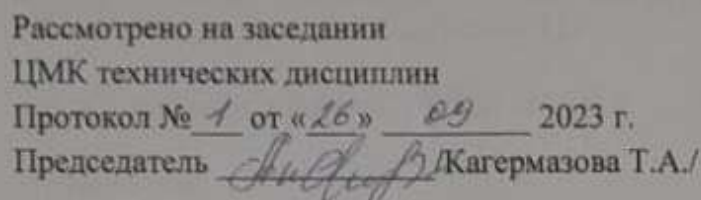 Рассмотрено на заседании
ЦМК технических дисциплин
Протокол № 1 от «26» 09 2023 г.
Председатель /Кагермазова Т.А./